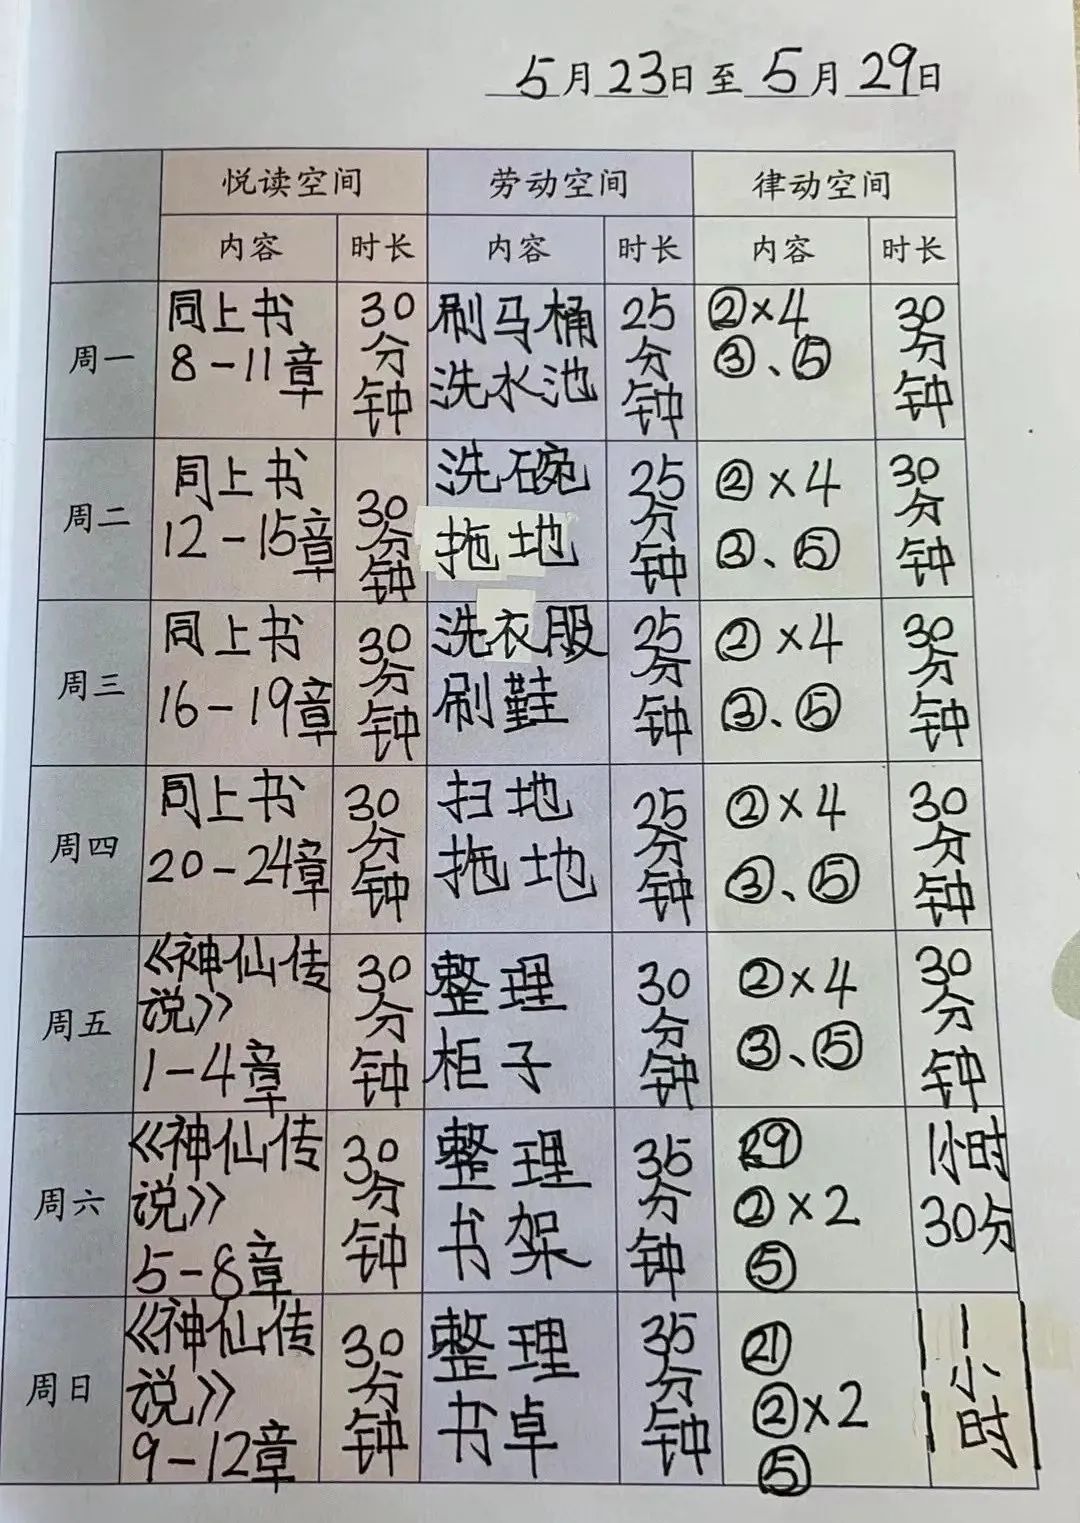 5月23日至5月29日
悦读空间 劳动空间 律动空间
内容 时长 内容 时长 内容 时长
周一
同上书
8-11章
30
分
钟
刷马桶
洗水池
25
分
钟
②×4
③、⑤
30
分
钟
周二
同上书
12-15章
30
分
钟
洗碗
拖地
25
分
钟
②×4
③、⑤
30
分
钟
周三
同上书
16-19章
30
分
钟
洗衣服
刷鞋
25
分
钟
②×4
③、⑤
30
分
钟
周四
同上书
20-24章
30
分
钟
扫地
拖地
25
分
钟
②×4
③、⑤
30
分
钟
周五
《神仙传
说》
1-4章
30
分
钟
整理
柜子
30
分
钟
②×4
③、⑤
30
分
钟
周六
《神仙传
说》
5-8章
30
分
钟
整理
书架
35
分
钟
②×2
⑤
1小时
30分
周日
《神仙传
说》
9-12章
30
分
钟
整理
书卓
35
分
钟
㉑
②×2
⑤
1
小
时